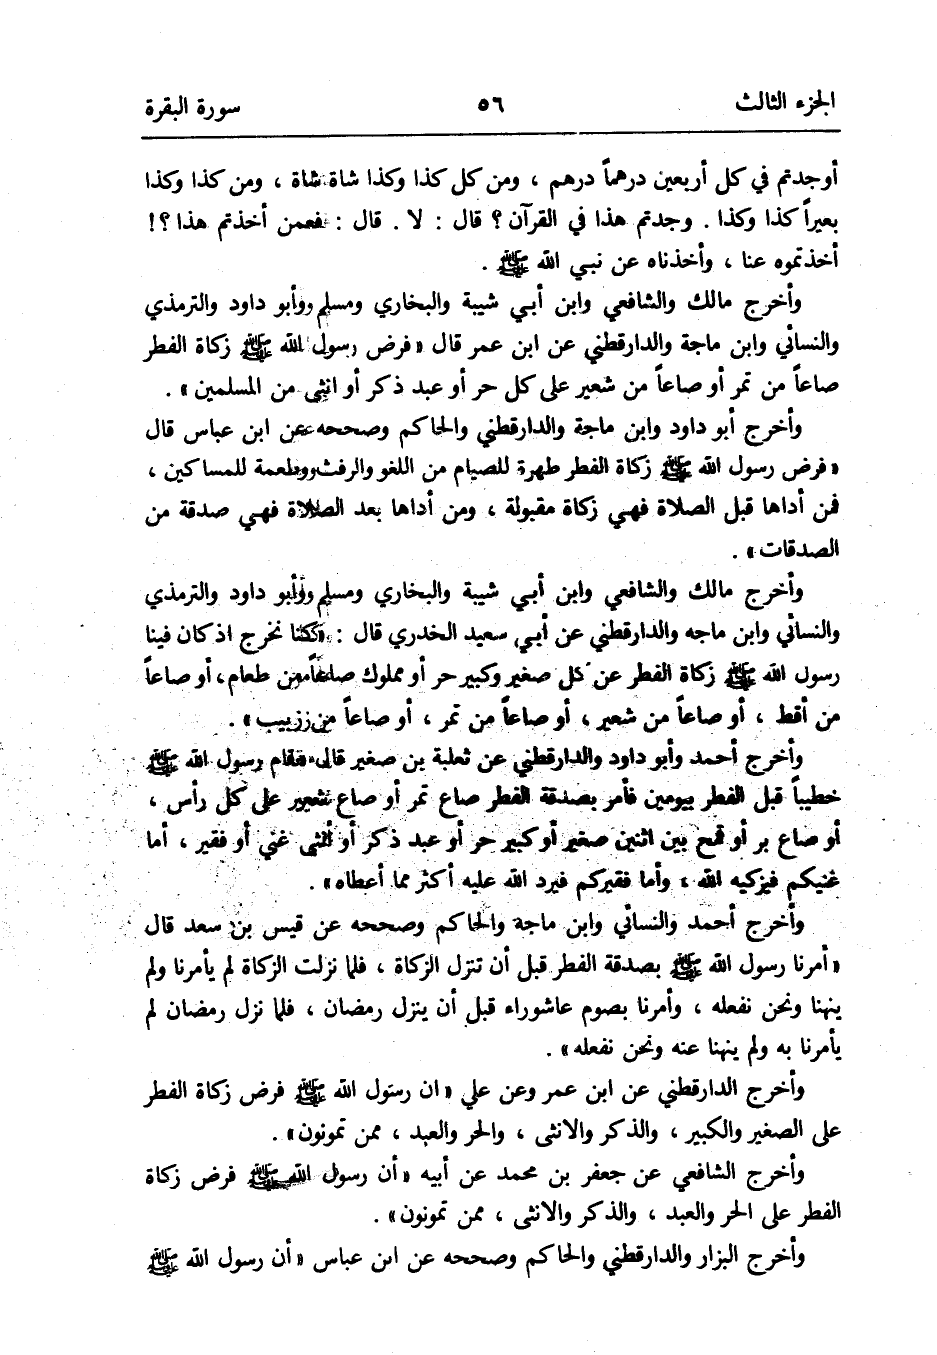 الجزء الثالث
٥٦
سورة البقرة
أوجدتم في كل أربعين درهماً درهم ، ومن كل كذا وكذا شاة شاة ، ومن كذا وكذا
بعيراً كذا وكذا . وجدتم هذا في القرآن ؟ قال : لا . قال : فعمن أخذتم هذا ؟ !
أخذتموه عنا ، وأخذناه عن نبي الله ﷺ .
وأخرج مالك والشافعي وابن أبي شيبة والبخاري ومسلم وأبو داود والترمذي
والنسائي وابن ماجة والدارقطني عن ابن عمر قال « فرض رسول الله ﷺ زكاة الفطر
صاعاً من تمر أو صاعاً من شعير على كل حر أو عبد ذكر أو انثى من المسلمين » .
وأخرج أبو داود وابن ماجة والدارقطني والحاكم وصححه عن ابن عباس قال
« فرض رسول الله ﷺ زكاة الفطر طهرة للصيام من اللغو والرفث وطعمة للمساكين ،
فمن أداها قبل الصلاة فهي زكاة مقبولة ، ومن أداها بعد الصلاة فهي صدقة من
الصدقات » .
وأخرج مالك والشافعي وابن أبي شيبة والبخاري ومسلم وأبو داود والترمذي
والنسائي وابن ماجه والدارقطني عن أبي سعيد الخدري قال : « كنا نخرج اذ كان فينا
رسول الله ﷺ زكاة الفطر عن كل صغير وكبير حر أو مملوك صاعاً من طعام، أو صاعاً
من أقط ، أو صاعاً من شعير ، أو صاعاً من تمر ، أو صاعاً من زبيب » .
وأخرج أحمد وأبو داود والدارقطني عن ثعلبة بن صغير قال « قام رسول الله ﷺ
خطيباً قبل الفطر بيومين فأمر بصدقة الفطر صاع تمر أو صاع شعير على كل رأس ،
أو صاع بر أو قمح بين اثنين صغير أو كبير حر أو عبد ذكر أو أنثى غني أو فقير ، أما
غنيكم فيزكيه الله ، وأما فقيركم فيرد الله عليه أكثر مما أعطاه » .
وأخرج أحمد والنسائي وابن ماجة والحاكم وصححه عن قيس بن سعد قال
« أمرنا رسول الله ﷺ بصدقة الفطر قبل أن تنزل الزكاة ، فلما نزلت الزكاة لم يأمرنا ولم
ينهنا ونحن نفعله ، وأمرنا بصوم عاشوراء قبل أن ينزل رمضان ، فلما نزل رمضان لم
يأمرنا به ولم ينهنا عنه ونحن نفعله » .
وأخرج الدارقطني عن ابن عمر وعن علي « ان رسول الله ﷺ فرض زكاة الفطر
على الصغير والكبير ، والذكر والانثى ، والحر والعبد ، ممن تمونون » .
وأخرج الشافعي عن جعفر بن محمد عن أبيه « أن رسول الله ﷺ فرض زكاة
الفطر على الحر والعبد ، والذكر والانثى ، ممن تمونون » .
وأخرج البزار والدارقطني والحاكم وصححه عن ابن عباس « أن رسول الله ﷺ